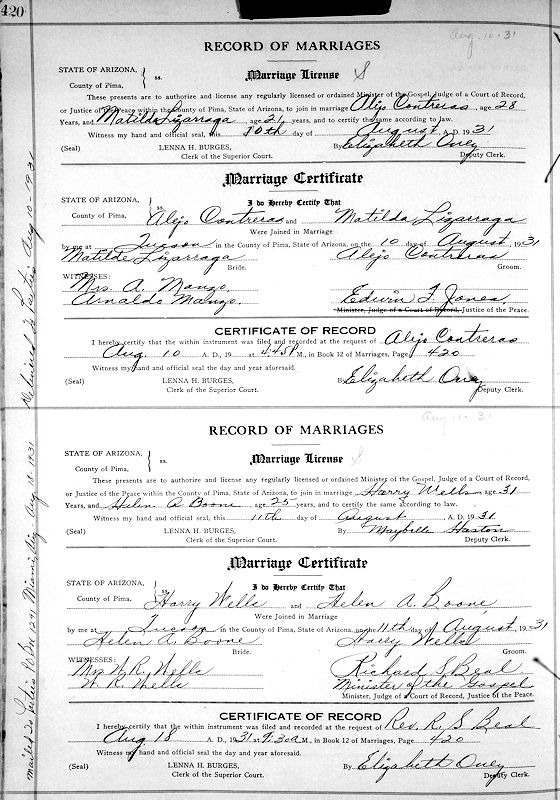 420
Aug. 10-31
RECORD OF MARRIAGES
STATE OF ARIZONA,
County of Pima, ss.
Marriage License S
These presents are to authorize and license any regularly licensed or ordained Minister of the Gospel, Judge of a Court of Record,
or Justice of the Peace within the County of Pima, State of Arizona, to join in marriage Alejo Contreras age 28
Years, and Matilda Lizarraga age 21 years, and to certify the same according to law.
Witness my hand and official seal, this 10th day of August A. D. 1931
(Seal) LENNA H. BURGES, By Elizabeth Oney
Clerk of the Superior Court. Deputy Clerk.
Marriage Certificate
STATE OF ARIZONA,
County of Pima, ss.
I do Hereby Certify That
Alejo Contreras and Matilda Lizarraga
Were Joined in Marriage
by me at Tucson in the County of Pima, State of Arizona, on the 10 day of August, 1931
Matilde Lizarraga Alejo Contreras
Bride. Groom.
WITNESSES:
Mrs. A. Manzo,
Arnaldo Manzo. Edwin F. Jones,
Minister, Judge of a Court of Record, Justice of the Peace.
CERTIFICATE OF RECORD
I hereby certify that the within instrument was filed and recorded at the request of Alejo Contreras
Aug. 10 A. D., 19 at 4:45 P. M., in Book 12 of Marriages, Page 420
Witness my hand and official seal the day and year aforesaid.
(Seal) LENNA H. BURGES, Elizabeth Oney
Clerk of the Superior Court. Deputy Clerk.
Returned to Parties Aug 10-1931
Aug. 11-31
RECORD OF MARRIAGES
STATE OF ARIZONA,
County of Pima, ss.
Marriage License S
These presents are to authorize and license any regularly licensed or ordained Minister of the Gospel, Judge of a Court of Record,
or Justice of the Peace within the County of Pima, State of Arizona, to join in marriage Harry Wells age 31
Years, and Helen A Boone age 25 years, and to certify the same according to law.
Witness my hand and official seal, this 11th day of August, A. D. 1931
(Seal) LENNA H. BURGES, By Maybelle Haston
Clerk of the Superior Court. Deputy Clerk.
Marriage Certificate
STATE OF ARIZONA,
County of Pima, ss.
I do Hereby Certify That
Harry Wells and Helen A. Boone,
Were Joined in Marriage
by me at Tucson in the County of Pima, State of Arizona, on the 11th day of August, 1931
Helen A Boone Harry Wells
Bride. Groom.
WITNESSES:
Mrs W. R. Wells Richard S. Beal
W. R. Wells Minister of the Gospel
Minister, Judge of a Court of Record, Justice of the Peace.
CERTIFICATE OF RECORD
I hereby certify that the within instrument was filed and recorded at the request of Rev. R. S Beal
Aug 18 A. D., 1931 at 9:30 A. M., in Book 12 of Marriages, Page 420
Witness my hand and official seal the day and year aforesaid.
(Seal) LENNA H. BURGES, By Elizabeth Oney
Clerk of the Superior Court. Deputy Clerk.
mailed to Parties Miami, Ariz Aug 18 1931